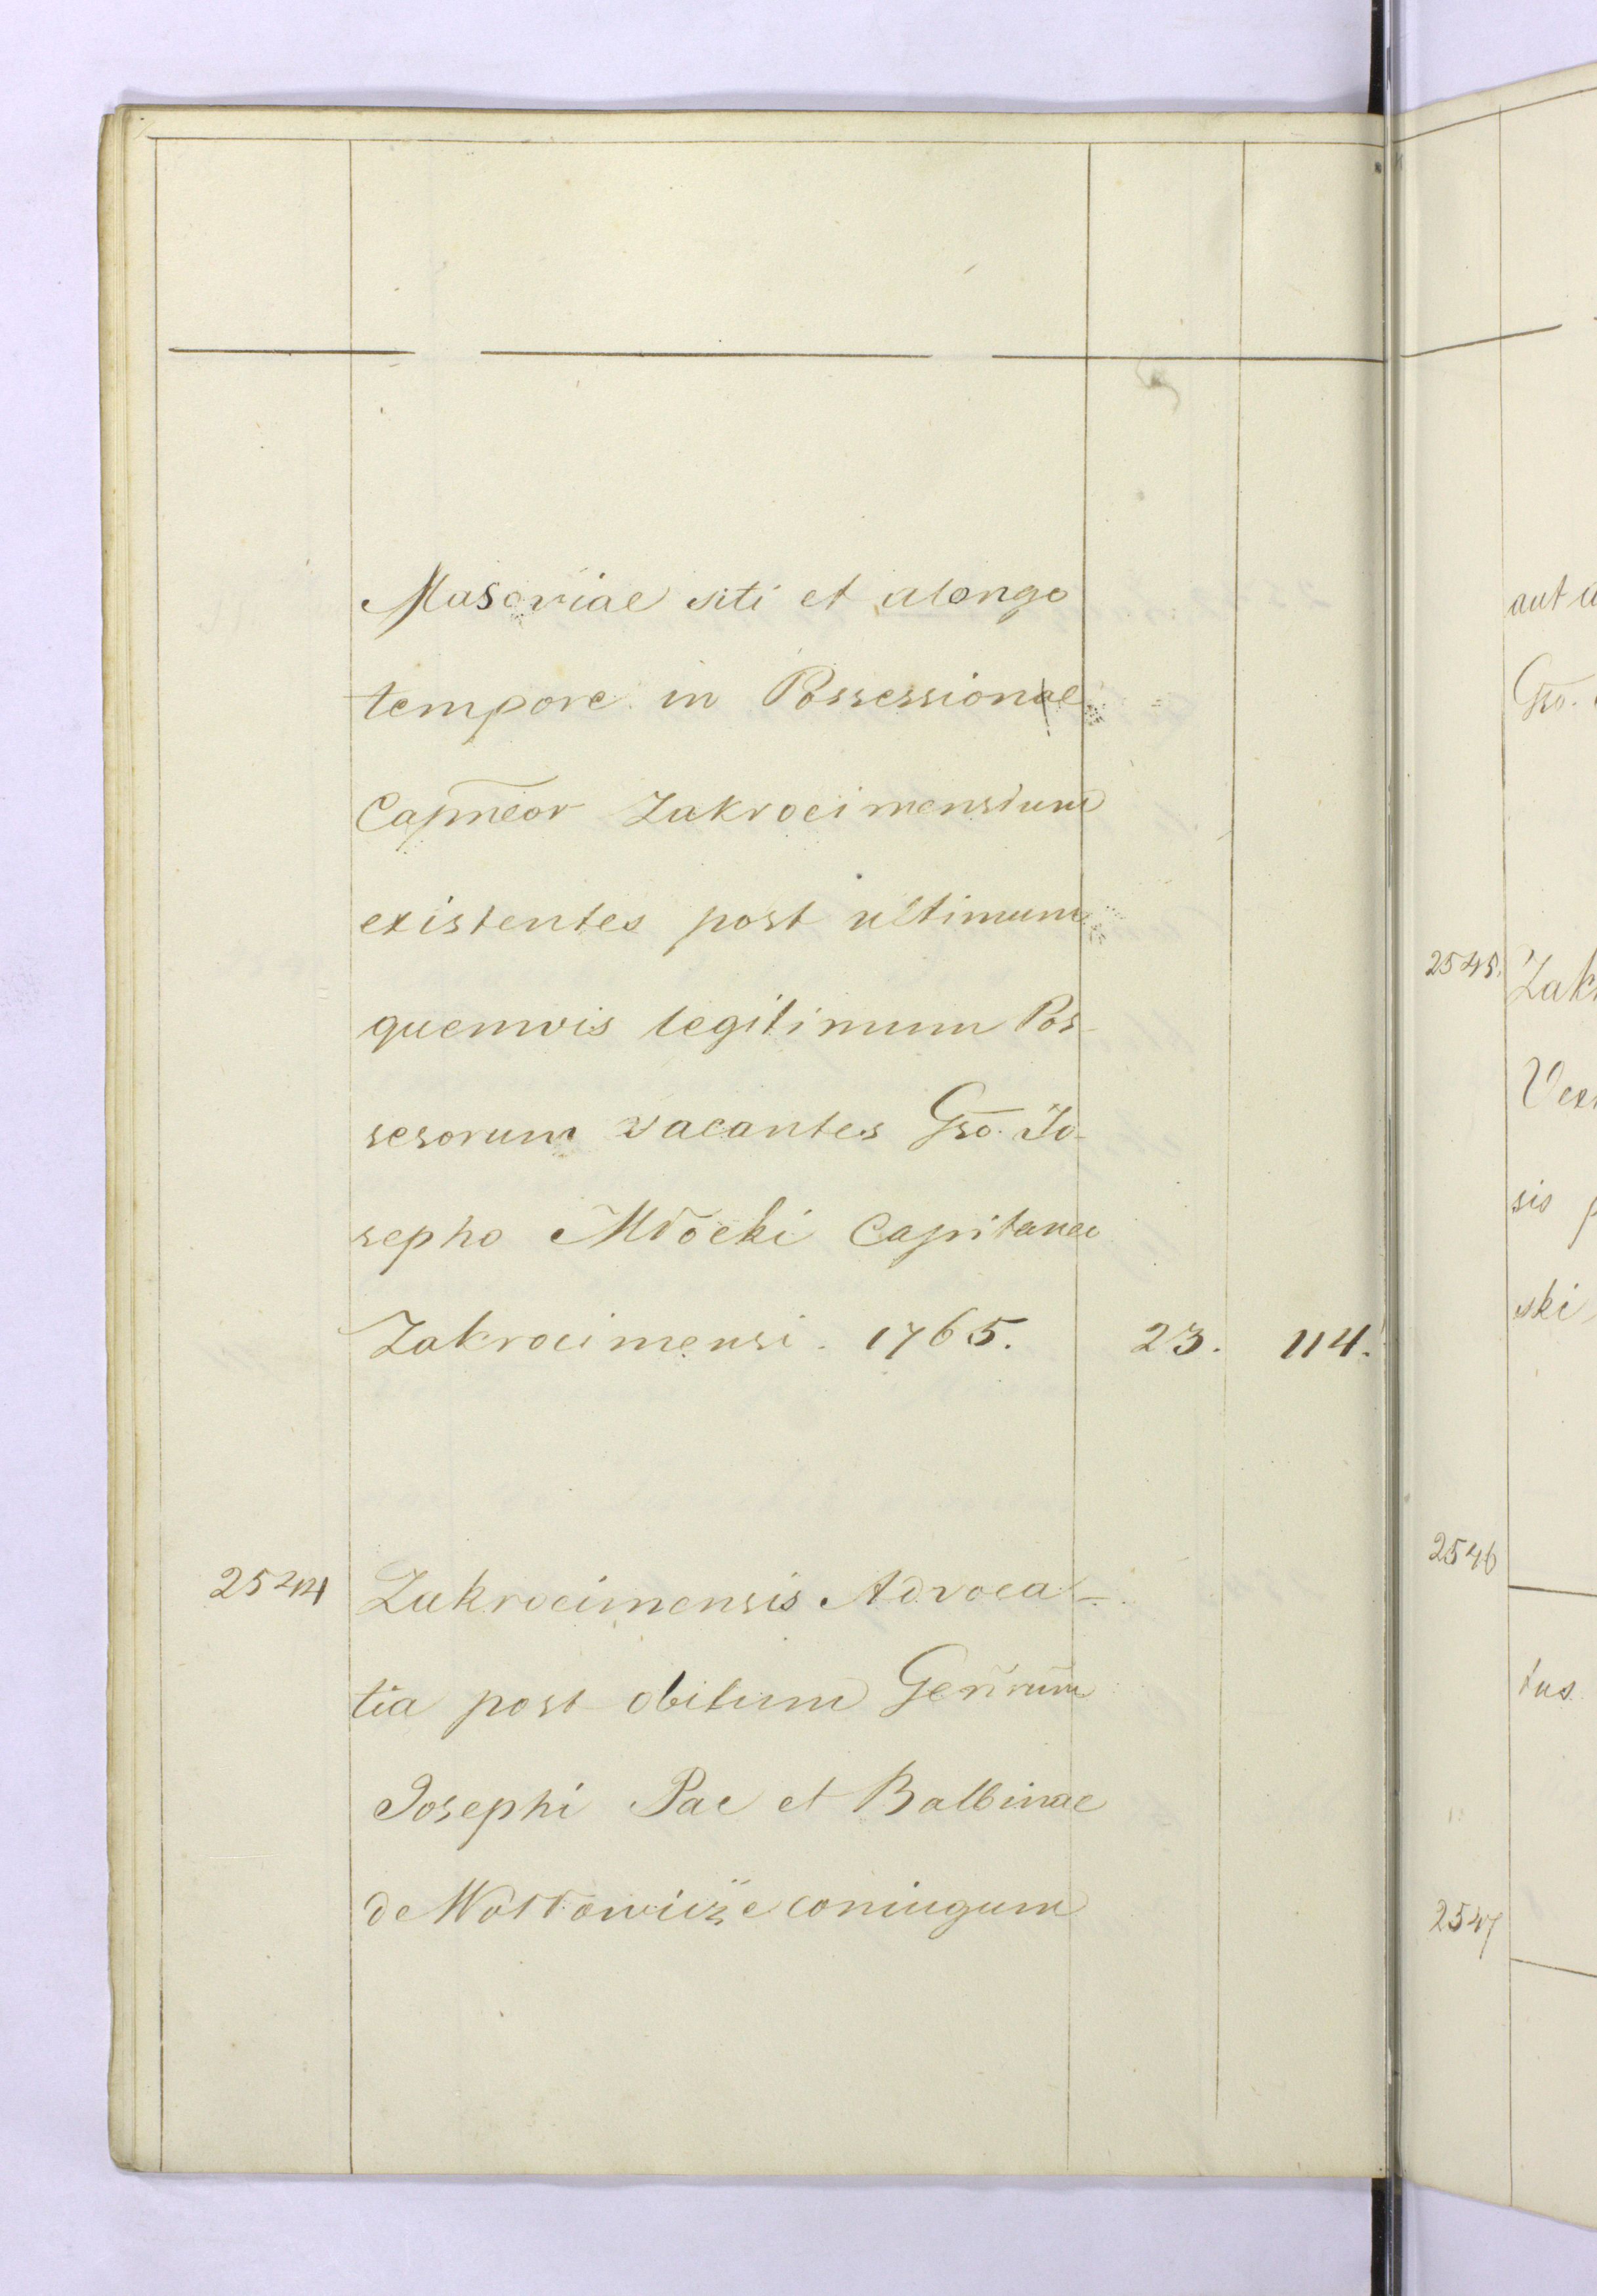 Masoviae siti et alongo
tempore in Possessionae
Capn̄eor Zakrocimensium
existentes post ultimum
quemvis legitimum Pos-
sesorum vacantes Gso. Jo-
sepho Młocki Capitaneo
Zakrocimensi. 1765. 23. 114.
2544 Zakrocimensis Advoca-
tia post obitum Gen̄rum̄
Josephi Pac et Balbinae
de coniugum
aut a
Gso.
2545. Zak
Vex
sis p
ski
2546
tus
2547